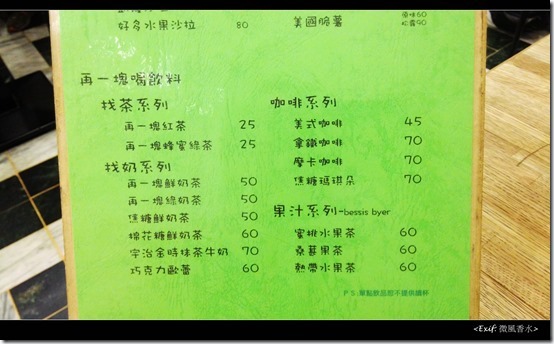 好多水果沙拉 80
美國脆薯 原味60
松露90
再一塊喝飲料
找茶系列
再一塊紅茶 25
再一塊蜂蜜綠茶 25
找奶系列
再一塊鮮奶茶 50
再一塊綠奶茶 50
焦糖鮮奶茶 50
棉花糖鮮奶茶 60
宇治金時抹茶牛奶 70
巧克力歐蕾 60
咖啡系列
美式咖啡 45
拿鐵咖啡 70
摩卡咖啡 70
焦糖瑪琪朵 70
果汁系列-bessis byer
蜜桃水果茶 60
桑葚果茶 60
熱帶水果茶 60
PS:單點飲品恕不提供續杯
<Exif: 微風香水>